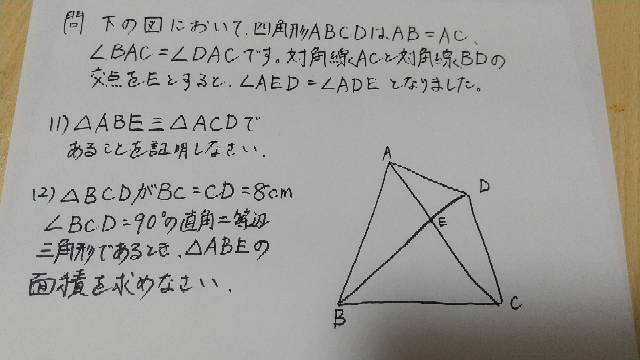 問 下の図において、四角形ABCDはAB=AC、
∠BAC=∠DACです。対角線ACと対角線BDの
交点をEとすると、∠AED=∠ADEとなりました。
(1) △ABE≡△ACDで
あることを証明しなさい。
(2) △BCDがBC=CD=8cm
∠BCD=90°の直角二等辺
三角形であるとき、△ABEの
面積を求めなさい。
A
D
E
B
C